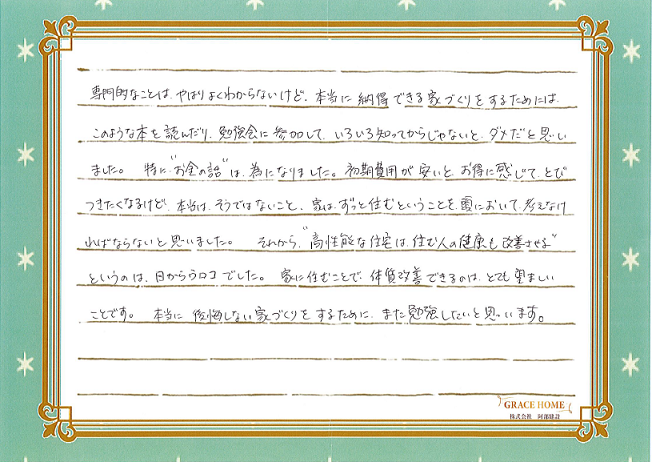 専門的なことは、やはりよくわからないけど、本当に納得できる家づくりをするためには、
このような本を読んだり、勉強会に参加して、いろいろ知ってからじゃないと、ダメだと思い
ました。 特に"お金の話"は、為になりました。初期費用が安いと、お得に感じて、とび
つきたくなるけど、本当は、そうではないこと、家は、ずっと住むということを、頭において、考えなけ
ればならないと思いました。 それから、"高性能な住宅は、住む人の健康も改善させる"
というのは、目からうロコでした。 家に住むことで、体質改善できるのは、とても望ましい
ことです。 本当に後悔しない家づくりをするために、また勉強したいと思います。
GRACE HOME
株式会社 阿部建設